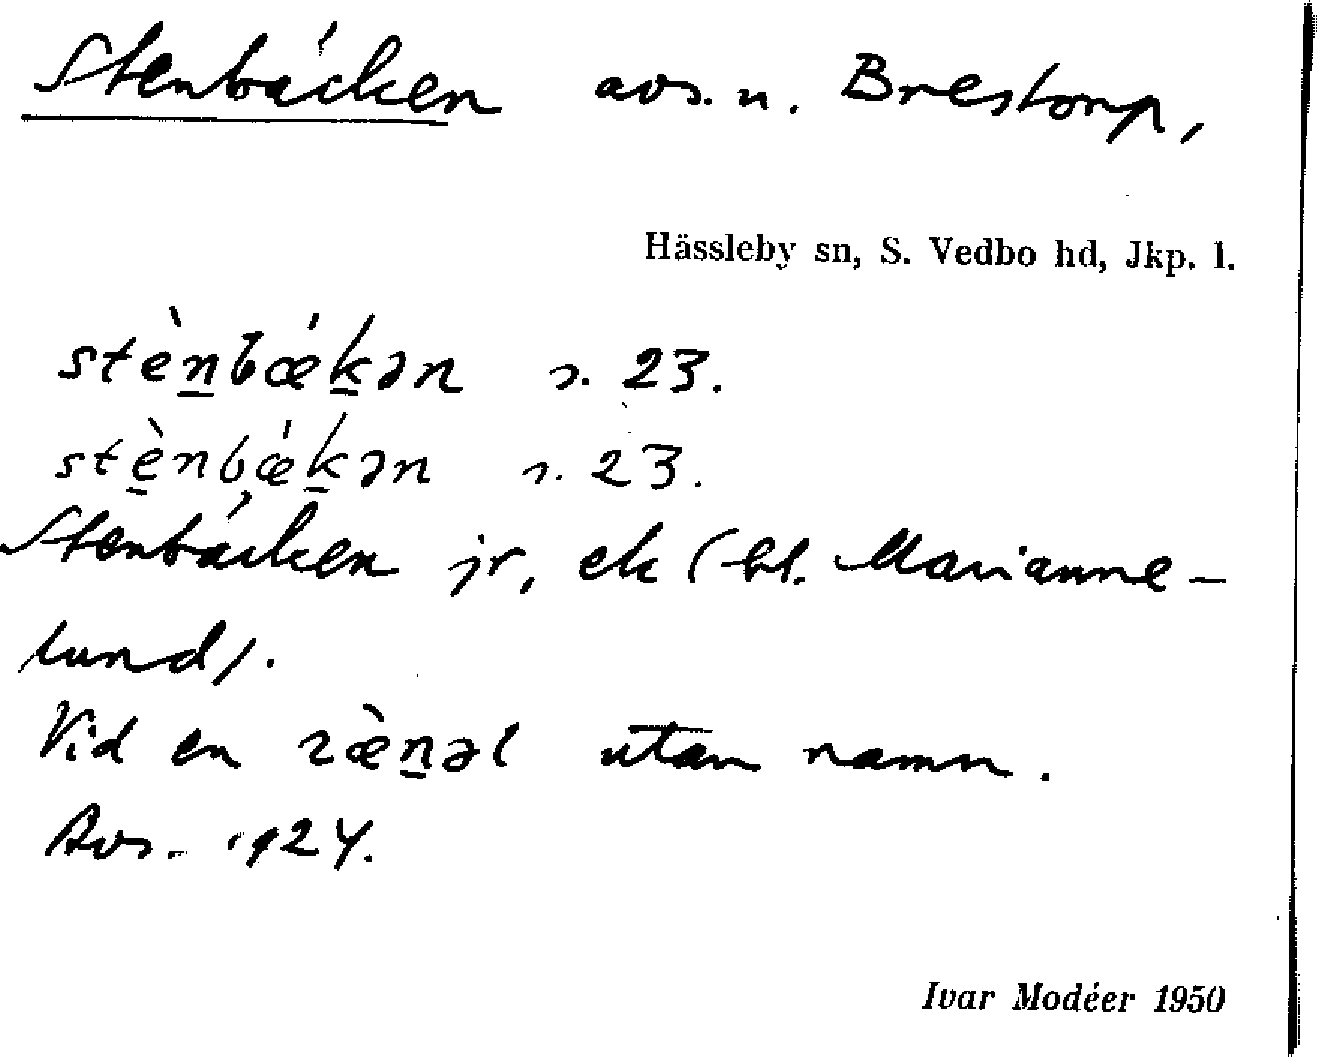 Stenbäcken avs. u. Brestorp,
Hässleby sn, S. Vedbo hd, Jkp. l.
stèn̲bǽk̲ən s. 23.
stè̲nbǽk̲ən s. 23.
Stenbäcken jr, ek (bl. Marianne-
lund).
Vid en ræ̀n̲əl utan namn.
Avs. 1924.
Ivar Modéer 1950